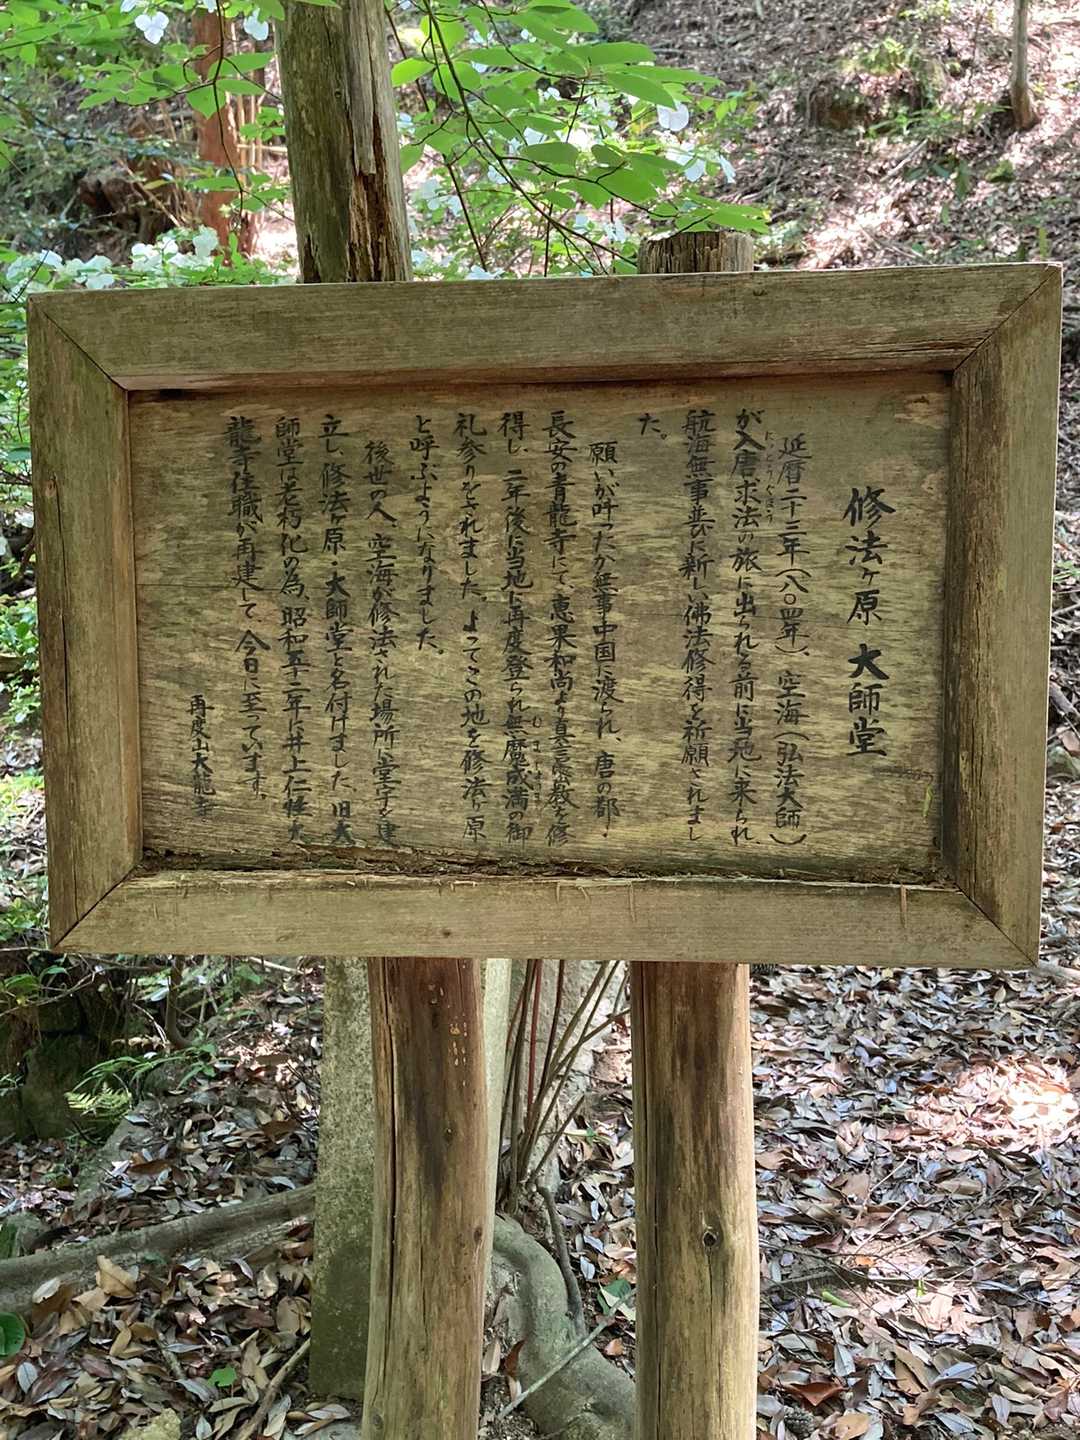 修法ヶ原 大師堂
延暦二十三年(八〇四年)、空海(弘法大師)
が入唐求法の旅に出られる前に当地に来られ、
航海無事並びに新しい佛法修得を祈願されまし
た。
願いが叶ったか無事中国に渡られ、唐の都・
長安の青龍寺にて、恵果和尚より真言宗教を修
得し、二年後に当地に再度登られ無麿成満の御
礼参りをされました。よってこの地を修法ヶ原
と呼ぶようになりました。
後世の人、空海が修法された場所に堂宇を建
立し、修法ヶ原・大師堂と名付けました、旧大
師堂は老朽化の為、昭和五十二年に井上仁性大
龍寺住職が再建して、今日に至っています。
再度山大龍寺